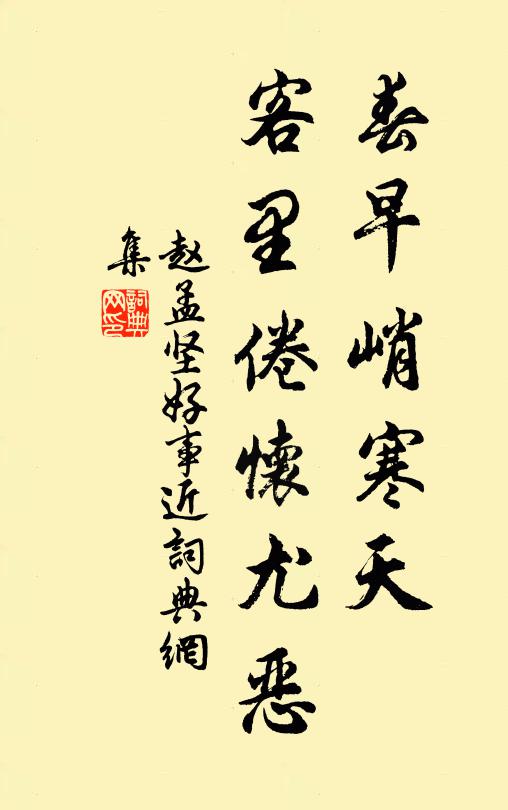 春早峭寒天
客里倦懷尤恶
赵孟坚好事近詞典網
集
詞典
网印